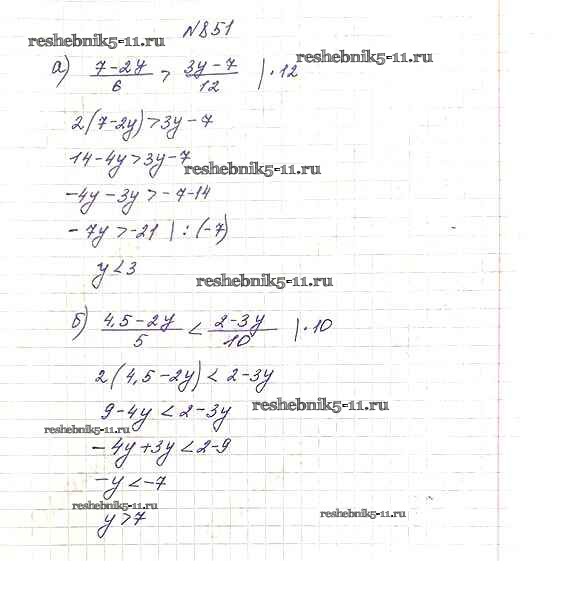 №851
reshebnik5-11.ru
reshebnik5-11.ru
а) (7-2y)/6 > (3y-7)/12 | ·12
2(7-2y)>3y-7
14-4y>3y-7
reshebnik5-11.ru
-4y-3y>-7-14
-7y>-21 | : (-7)
y<3
reshebnik5-11.ru
б) (4,5-2y)/5 < (2-3y)/10 | ·10
2(4,5-2y)<2-3y
9-4y<2-3y
reshebnik5-11.ru
reshebnik5-11.ru
-4y+3y<2-9
-y<-7
reshebnik5-11.ru
y>7
reshebnik5-11.ru